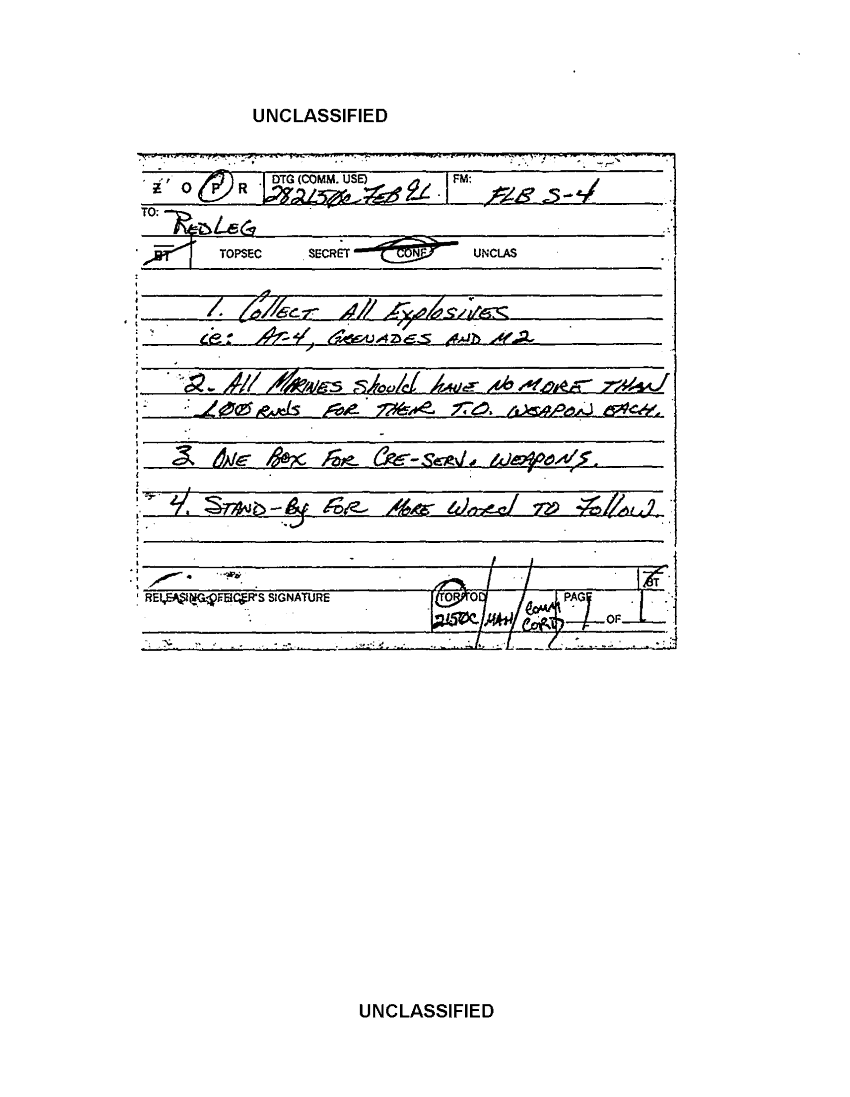 UNCLASSIFIED
Z O P R DTG (COMM. USE) FM:
FEB 91 FLB S-4
TO: REDLEG
BT TOPSEC SECRET CONF UNCLAS
1. Collect All Explosives
ie: AT-4, GRENADES AND M2
2. All MARINES Should HAVE NO MORE THAN
100 RNDS FOR THEIR T.O. WEAPON EACH.
3 ONE BOX FOR CRE-SERV. WEAPONS.
4. STAND-By FOR MORE Word TO Follow
BT
RELEASING OFFICER'S SIGNATURE TOR/TOD PAGE
2150C / / Comm 1 OF 1
CORD
UNCLASSIFIED